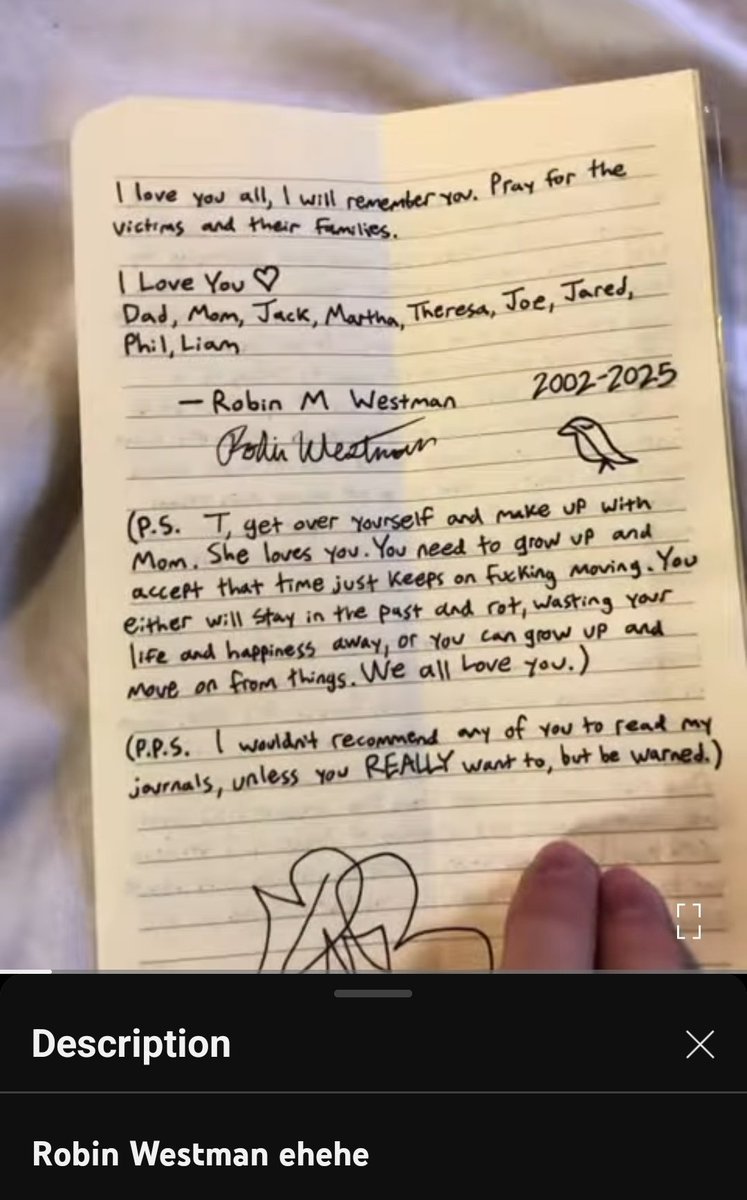 I love you all, I will remember you. Pray for the
victims and their families.
I Love You ♡
Dad, Mom, Jack, Martha, Theresa, Joe, Jared,
Phil, Liam
— Robin M Westman 2002-2025
Robin Westman
(P.S. T, get over yourself and make up with
Mom. She loves you. You need to grow up and
accept that time just keeps on fucking moving. You
either will stay in the past and rot, wasting your
life and happiness away, or you can grow up and
move on from things. We all Love you.)
(P.P.S. I wouldn't recommend any of you to read my
journals, unless you REALLY want to, but be warned.)
Description
Robin Westman ehehe